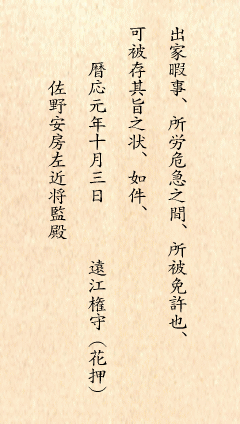 出家暇事、所労危急之間、所被免許也、
可被存其旨之状、如件、
暦応元年十月三日　　遠江権守（花押）
佐野安房左近将監殿